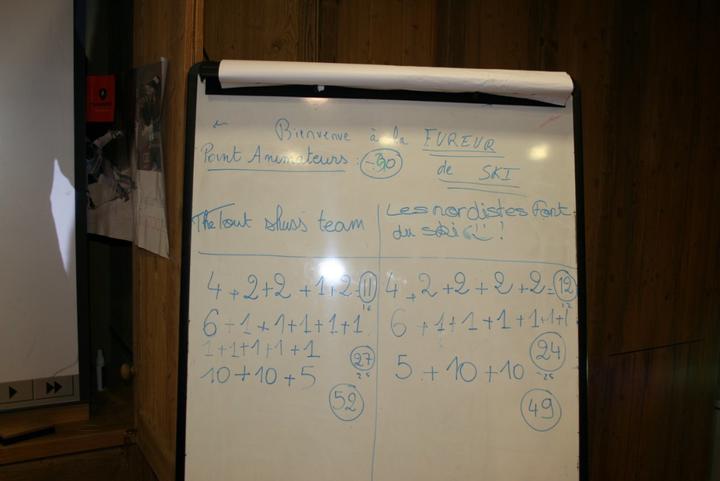 Bienvenue à la FUREUR
de SKI
Point Animateurs : -30
The Tout shuss team
4 + 2 + 2 + 1 + 2 = 11
16
6 + 1 + 1 + 1 + 1 + 1
1 + 1 + 1 + 1 + 1 27
25
10 + 10 + 5
52
Les nordistes font
du ski !
4 + 2 + 2 + 2 + 2 = 12
12
6 + 1 + 1 + 1 + 1 + 1 + 1
24
25
5 + 10 + 10
49